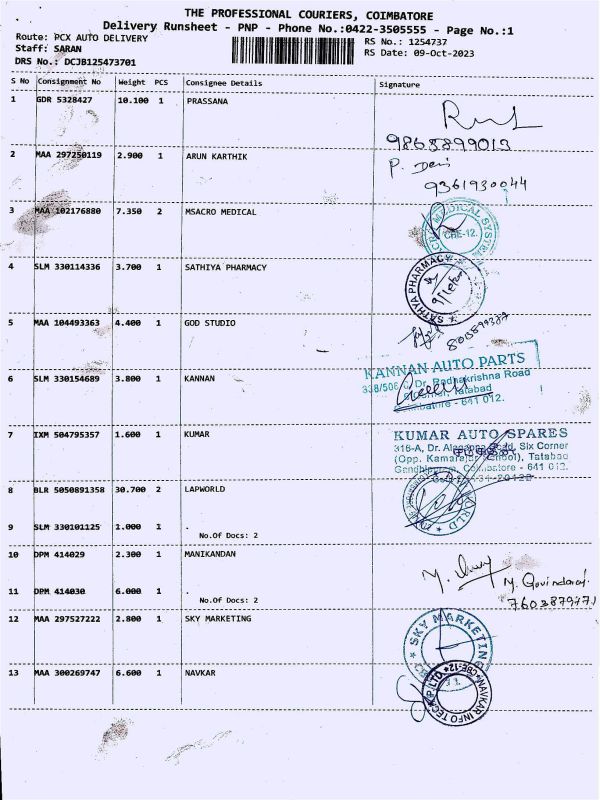 THE PROFESSIONAL COURIERS, COIMBATORE
Delivery Runsheet - PNP - Phone No.:0422-3505555 - Page No.:1
Route: PCX AUTO DELIVERY
RS No.: 1254737
Staff: SARAN
RS Date: 09-Oct-2023
DRS No.: DCJB125473701
S No Consignment No Weight PCS Consignee Details Signature
1 GDR 5328427 10.100 1 PRASSANA
9865899013
2 MAA 297250119 2.900 1 ARUN KARTHIK
P. Devi
9361930044
3 MAA 102176880 7.350 2 MSACRO MEDICAL
MEDICAL SYSTEM
CBE-12.
4 SLM 330114336 3.700 1 SATHIYA PHARMACY
SATHYA PHARMACY
5 MAA 104493363 4.400 1 GOD STUDIO
6 SLM 330154689 3.800 1 KANNAN
KANNAN AUTO PARTS
Dr. Radhakrishna Road
Tatabad
641 012.
7 IXM 504795357 1.600 1 KUMAR
KUMAR AUTO SPARES
318-A, Dr. Road, Six Corner
(Opp. School), Tatabad
Coimbatore - 641 012.
8 BLR 5050891358 30.700 2 LAPWORLD
WORLD
9 SLM 330101125 1.000 1 .
No.Of Docs: 2
10 DPM 414029 2.300 1 MANIKANDAN
M. Govindaraj
7603879471
11 DPM 414030 6.000 1 .
No.Of Docs: 2
12 MAA 297527222 2.800 1 SKY MARKETING
SKY MARKETING
13 MAA 300269747 6.600 1 NAVKAR
NAVKAR INFO TECH P LTD. CBE-12